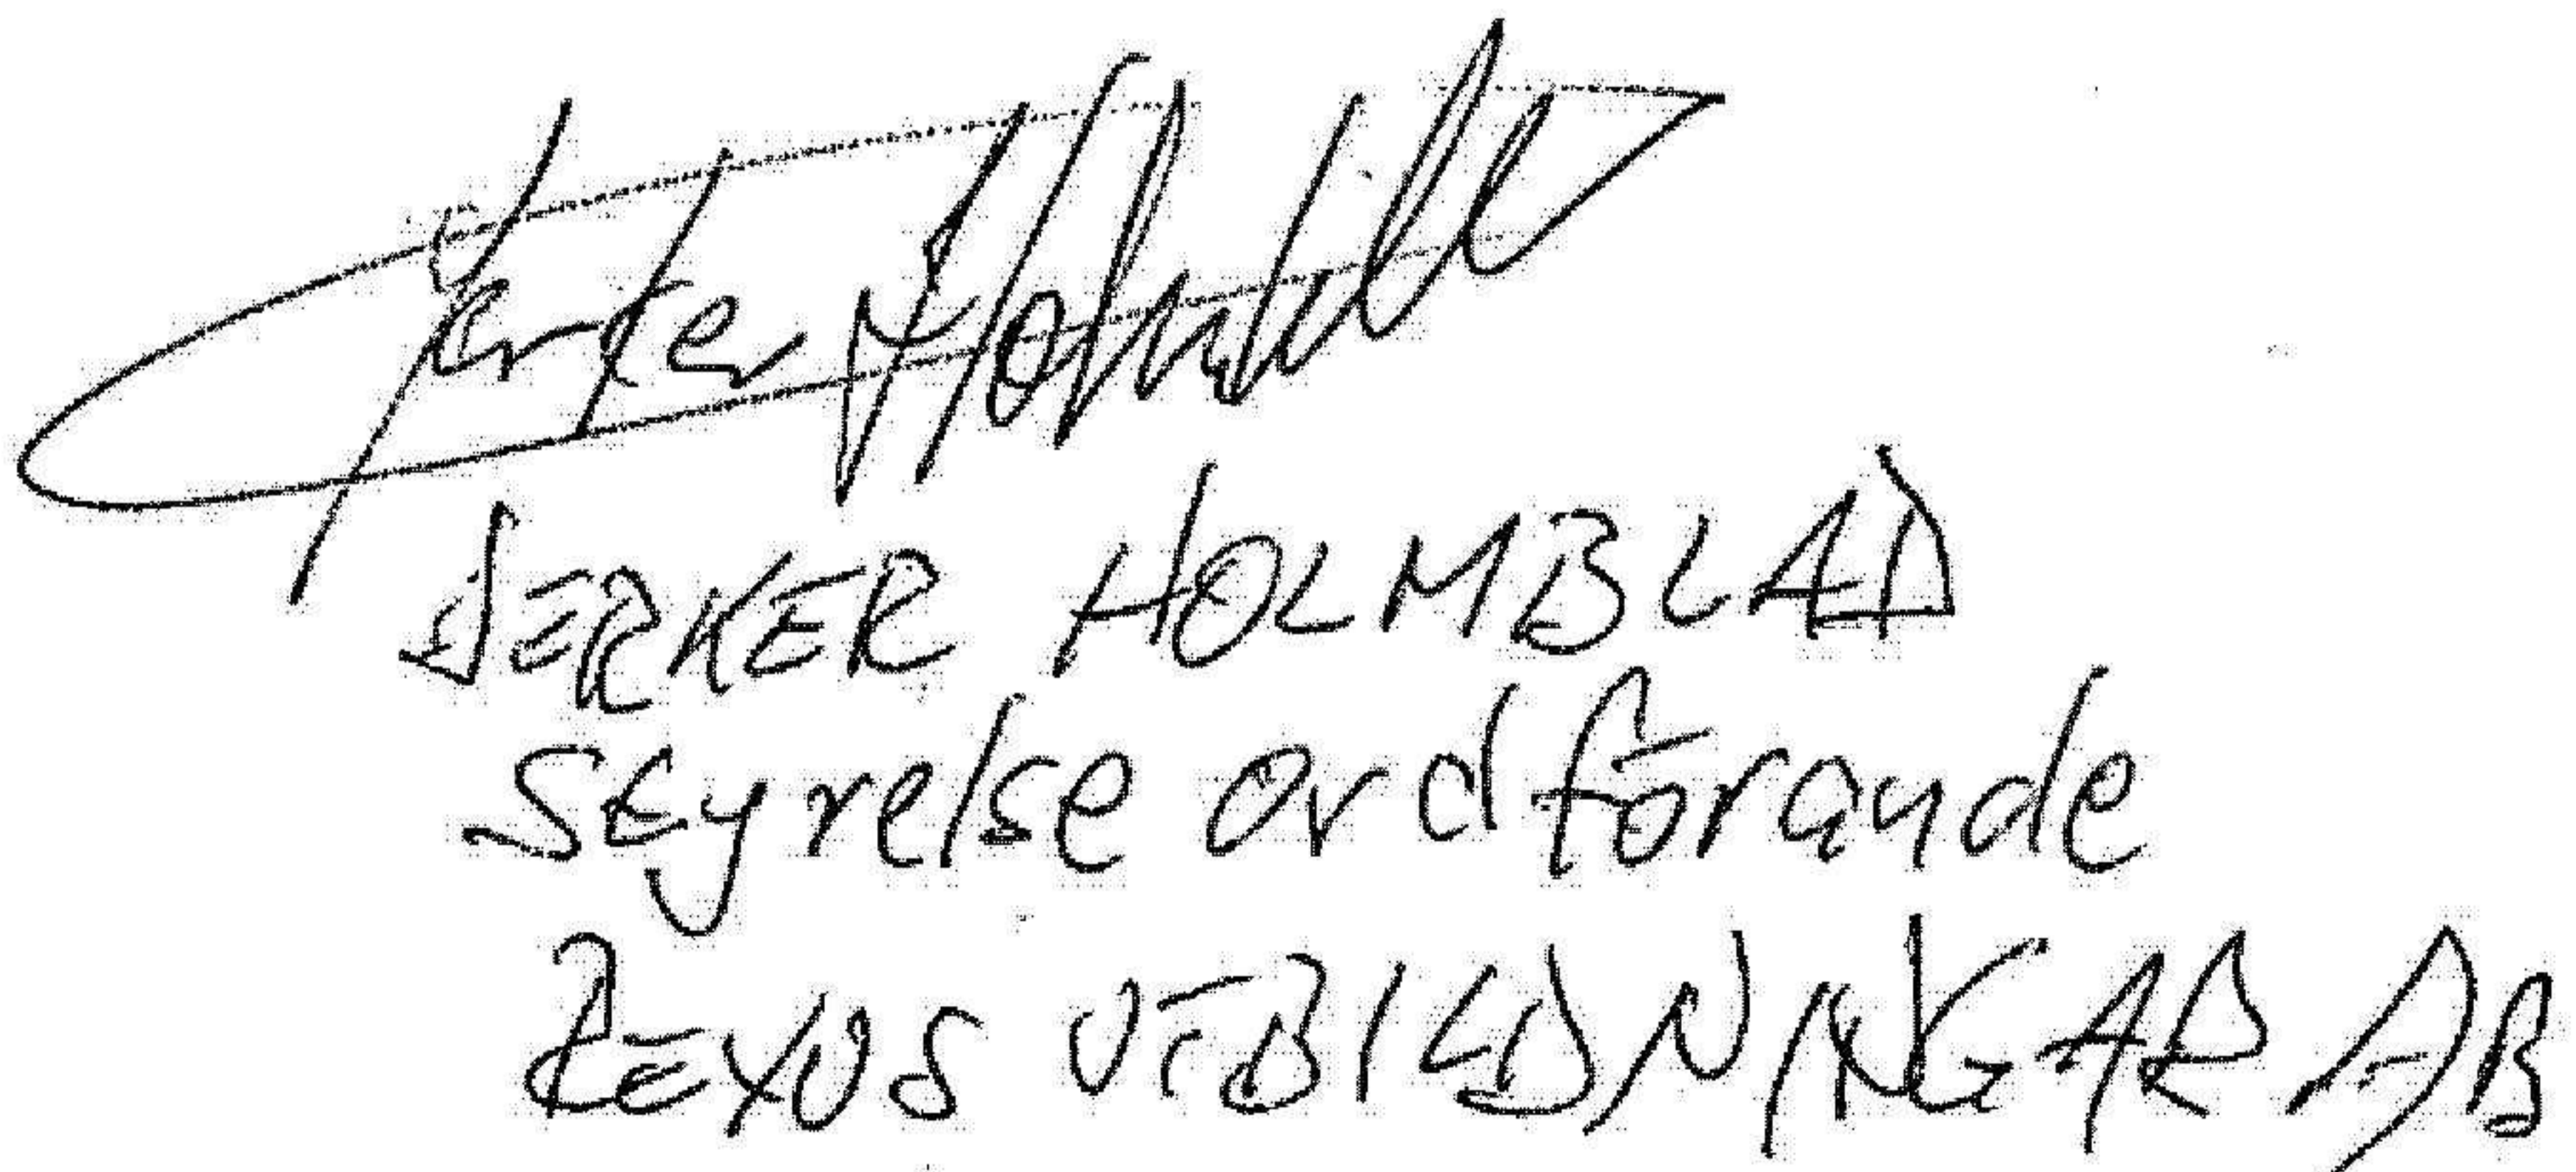 Jerker Holmblad
JERKER HOLMBLAD
Styrelse ordförande
REXUS UTBILDNINGAR AB